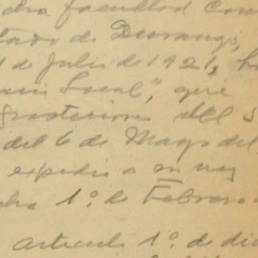 dra facultad Con
tado de Durango,
1 de Julio de 1921,
Local", que
posteriores del
del 6 de Mayo del
expedir a su vez
cha 1º. de Febrero
articulo 1º. de di